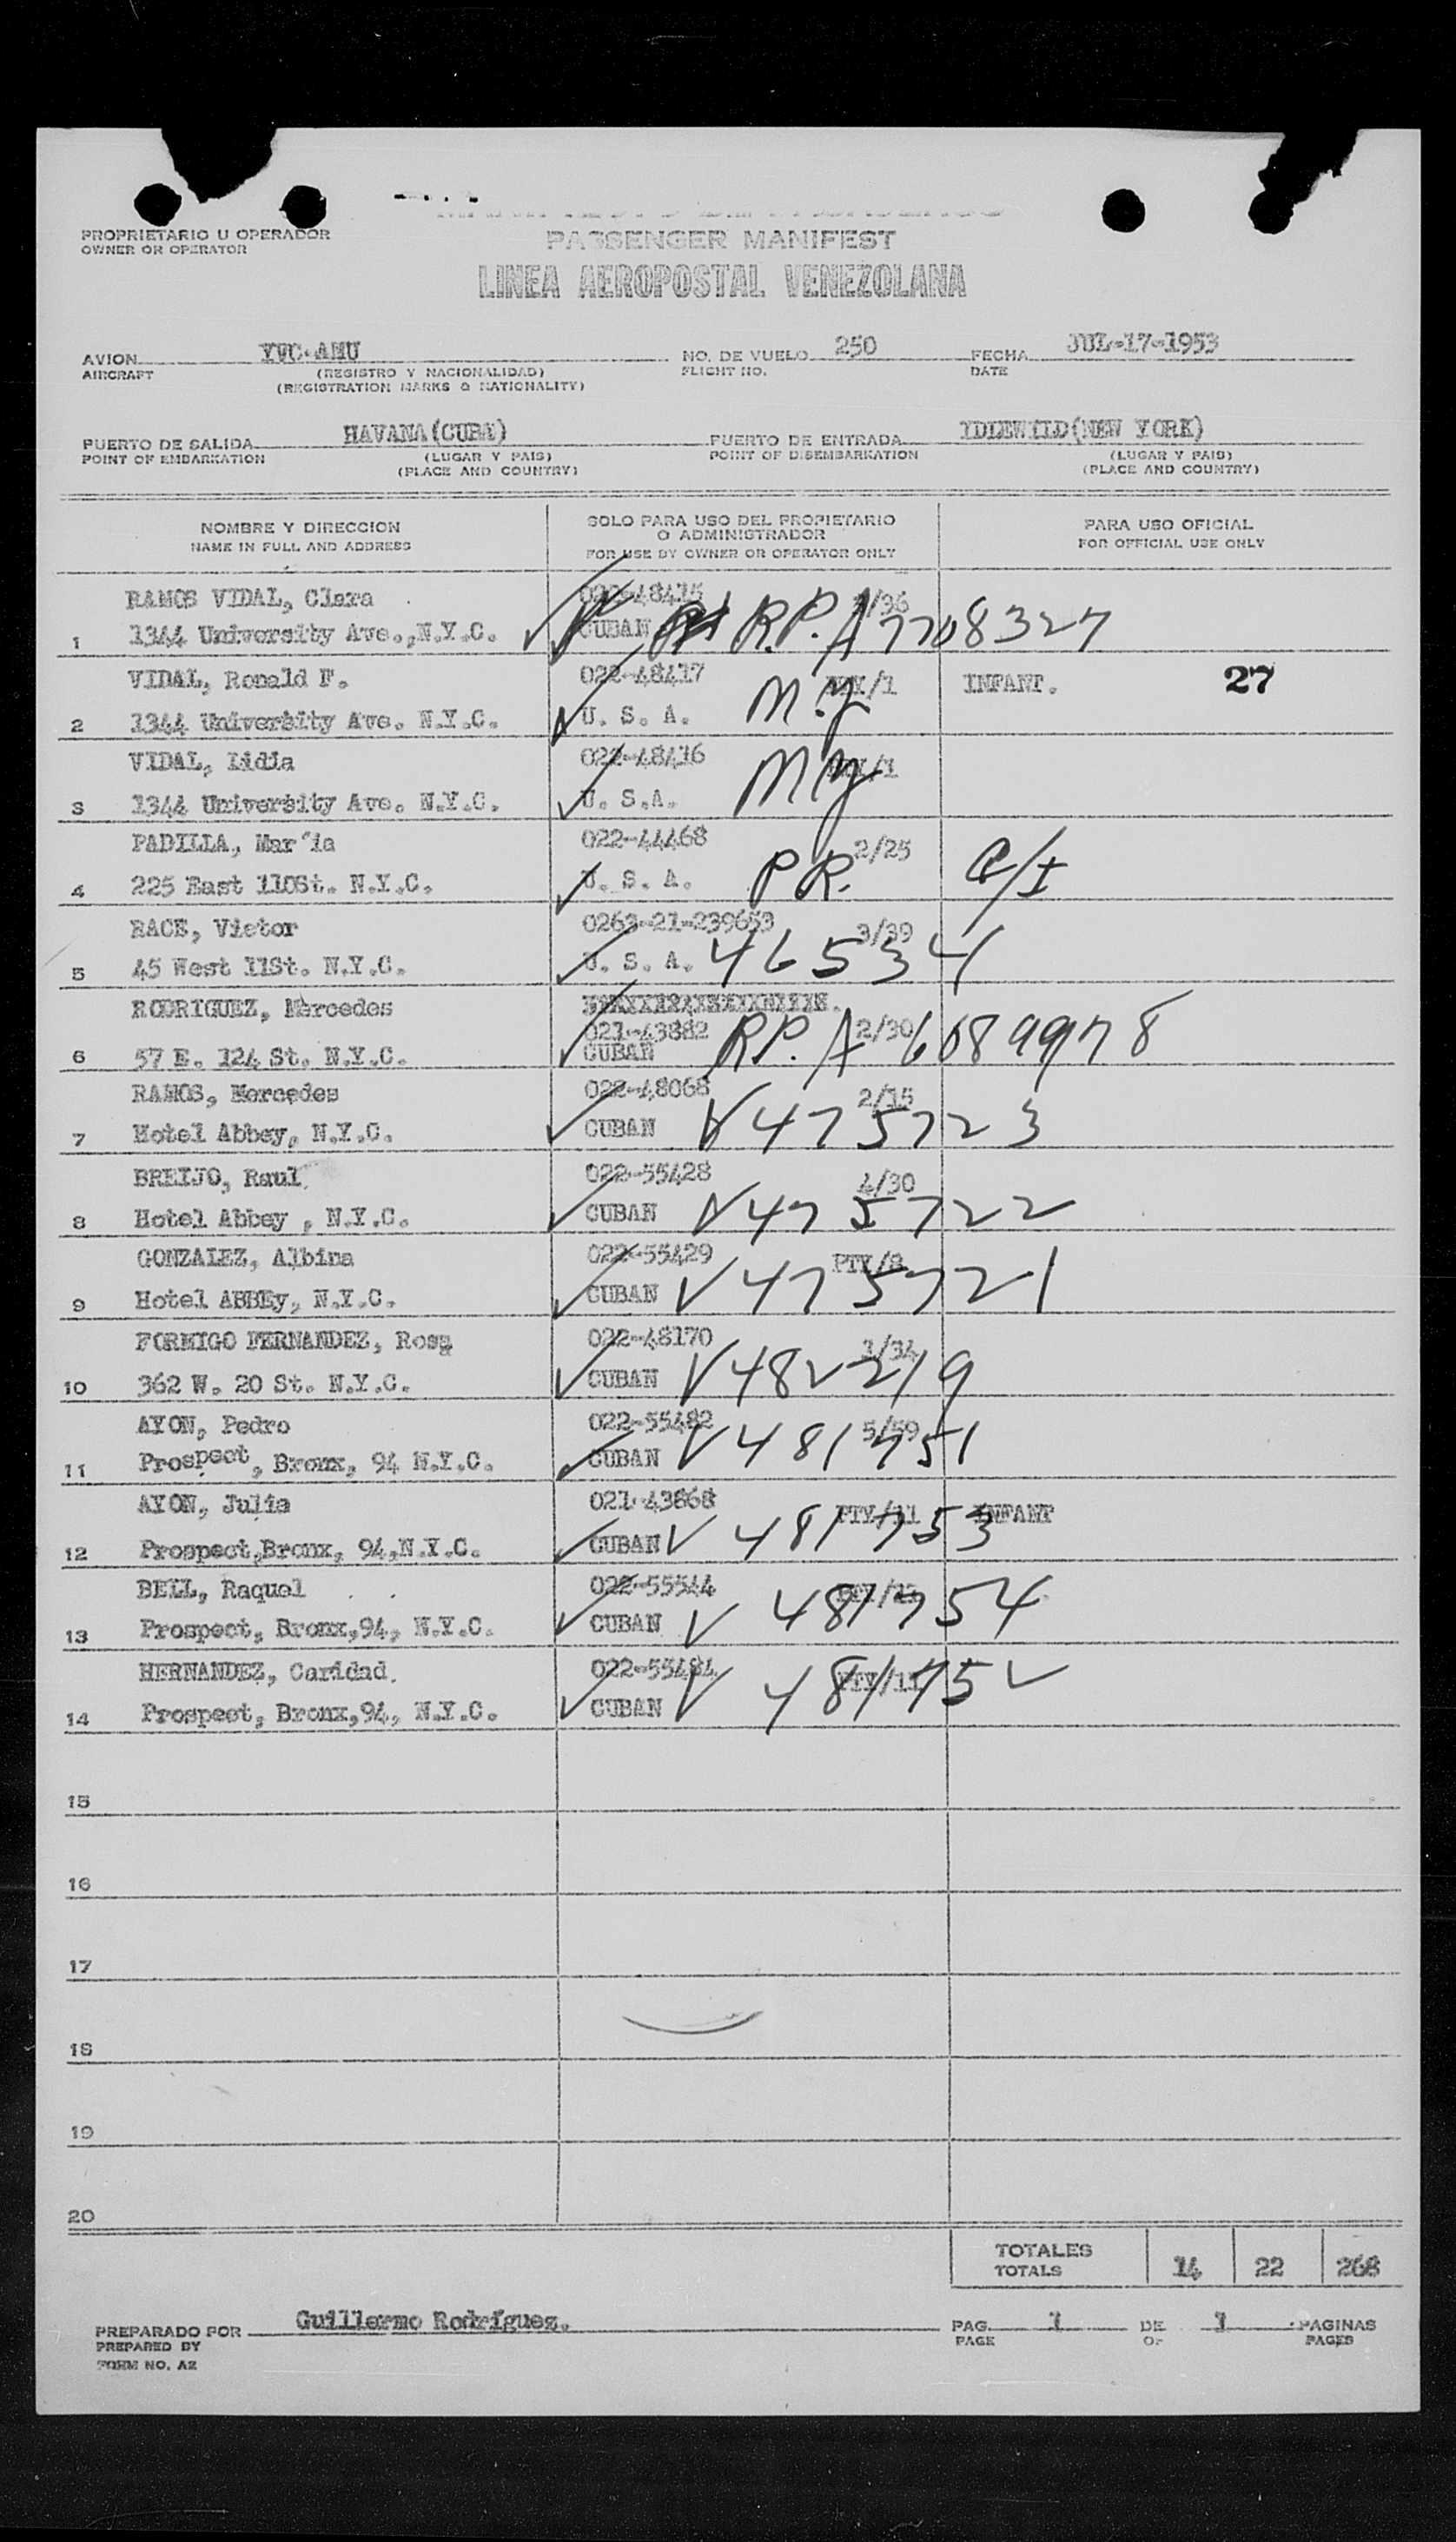 PROPRIETARIO U OPERADOR
OWNER OR OPERATOR
PASSENGER MANIFEST
LINEA AEROPOSTAL VENEZOLANA
AVION YVC-AMU NO. DE VUELO 250 FECHA JUL-17-1953
AIRCRAFT (REGISTRO Y NACIONALIDAD) FLIGHT NO. DATE
(REGISTRATION MARKS & NATIONALITY)
PUERTO DE SALIDA HAVANA(CUBA) PUERTO DE ENTRADA IDLEWILD(NEW YORK)
POINT OF EMBARKATION (LUGAR Y PAIS) POINT OF DISEMBARKATION (LUGAR Y PAIS)
(PLACE AND COUNTRY) (PLACE AND COUNTRY)
NOMBRE Y DIRECCION
NAME IN FULL AND ADDRESS
SOLO PARA USO DEL PROPIETARIO
O ADMINISTRADOR
FOR USE BY OWNER OR OPERATOR ONLY
PARA USO OFICIAL
FOR OFFICIAL USE ONLY
RAMOS VIDAL, Clara 022-48415 /36
1 1344 University Ave.,N.Y.C. CUBAN R.P. A7708327
VIDAL, Ronald F. 022-48417 /1 INFANT. 27
2 1344 University Ave. N.Y.C. U. S. A. M.Y
VIDAL, Lidia 022-48416 /1
3 1344 University Ave. N.Y.C. U. S.A. MY
PADILLA, Mar´ia 022-44468 2/25
4 225 East 110St. N.Y.C. U. S. A. P.R. C/I
RACE, Victor 0263-21-239653 3/39
5 45 West 11St. N.Y.C. U. S. A. 465334
RODRIGUEZ, Mercedes
021-43882 2/30
6 57 E. 124 St. N.Y.C. CUBAN R.P. A 6689978
RAMOS, Mercedes 022-48068 2/15
7 Hotel Abbey, N.Y.C. CUBAN V475723
BREIJO, Raul 022-55428 4/30
8 Hotel Abbey , N.Y.C. CUBAN V475722
GONZALEZ, Albina 022-55429 PTY/8
9 Hotel ABBEy, N.Y.C. CUBAN V475721
FORMIGO FERNANDEZ, Rosa 022-48170 1/34
10 362 W. 20 St. N.Y.C. CUBAN V482219
AYON, Pedro 022-55482 5/59
11 Prospect, Bronx, 94 N.Y.C. CUBAN V481751
AYON, Julia 021-43868 PTY/11 INFANT
12 Prospect,Bronx, 94,N.Y.C. CUBAN V 481753
BELL, Raquel 022-55544
13 Prospect, Bronx,94, N.Y.C. CUBAN V 481754
HERNANDEZ, Caridad. 022-55484 PTY/11
14 Prospect, Bronx,94, N.Y.C. CUBAN V 481752
15
16
17
18
19
20
TOTALES
TOTALS 14 22 268
PREPARADO POR Guillermo Rodríguez. PAG. 1 DE 1 PAGINAS
PREPARED BY PAGE OF PAGES
FORM NO. A2